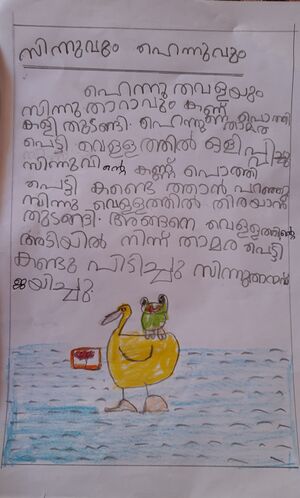 സിന്നുവും ഹെന്നുവും
ഹെന്നു തവളയും
സിന്നു താറാവും കണ്ണ് പൊത്തി
കളി തുടങ്ങി. ഹെന്നു താമര
പെട്ടി വെള്ളത്തിൽ ഒളിപ്പിച്ചു
സിന്നുവിന്റെ കണ്ണ് പൊത്തി
പെട്ടി കണ്ടെത്താൻ പറഞ്ഞു
സിന്നു വെള്ളത്തിൽ തിരയാൻ
തുടങ്ങി. അങ്ങനെ വെള്ളത്തിന്റെ
അടിയിൽ നിന്ന് താമര പെട്ടി
കണ്ടു പിടിച്ചു സിന്നുതന്നെ
ജയിച്ചു